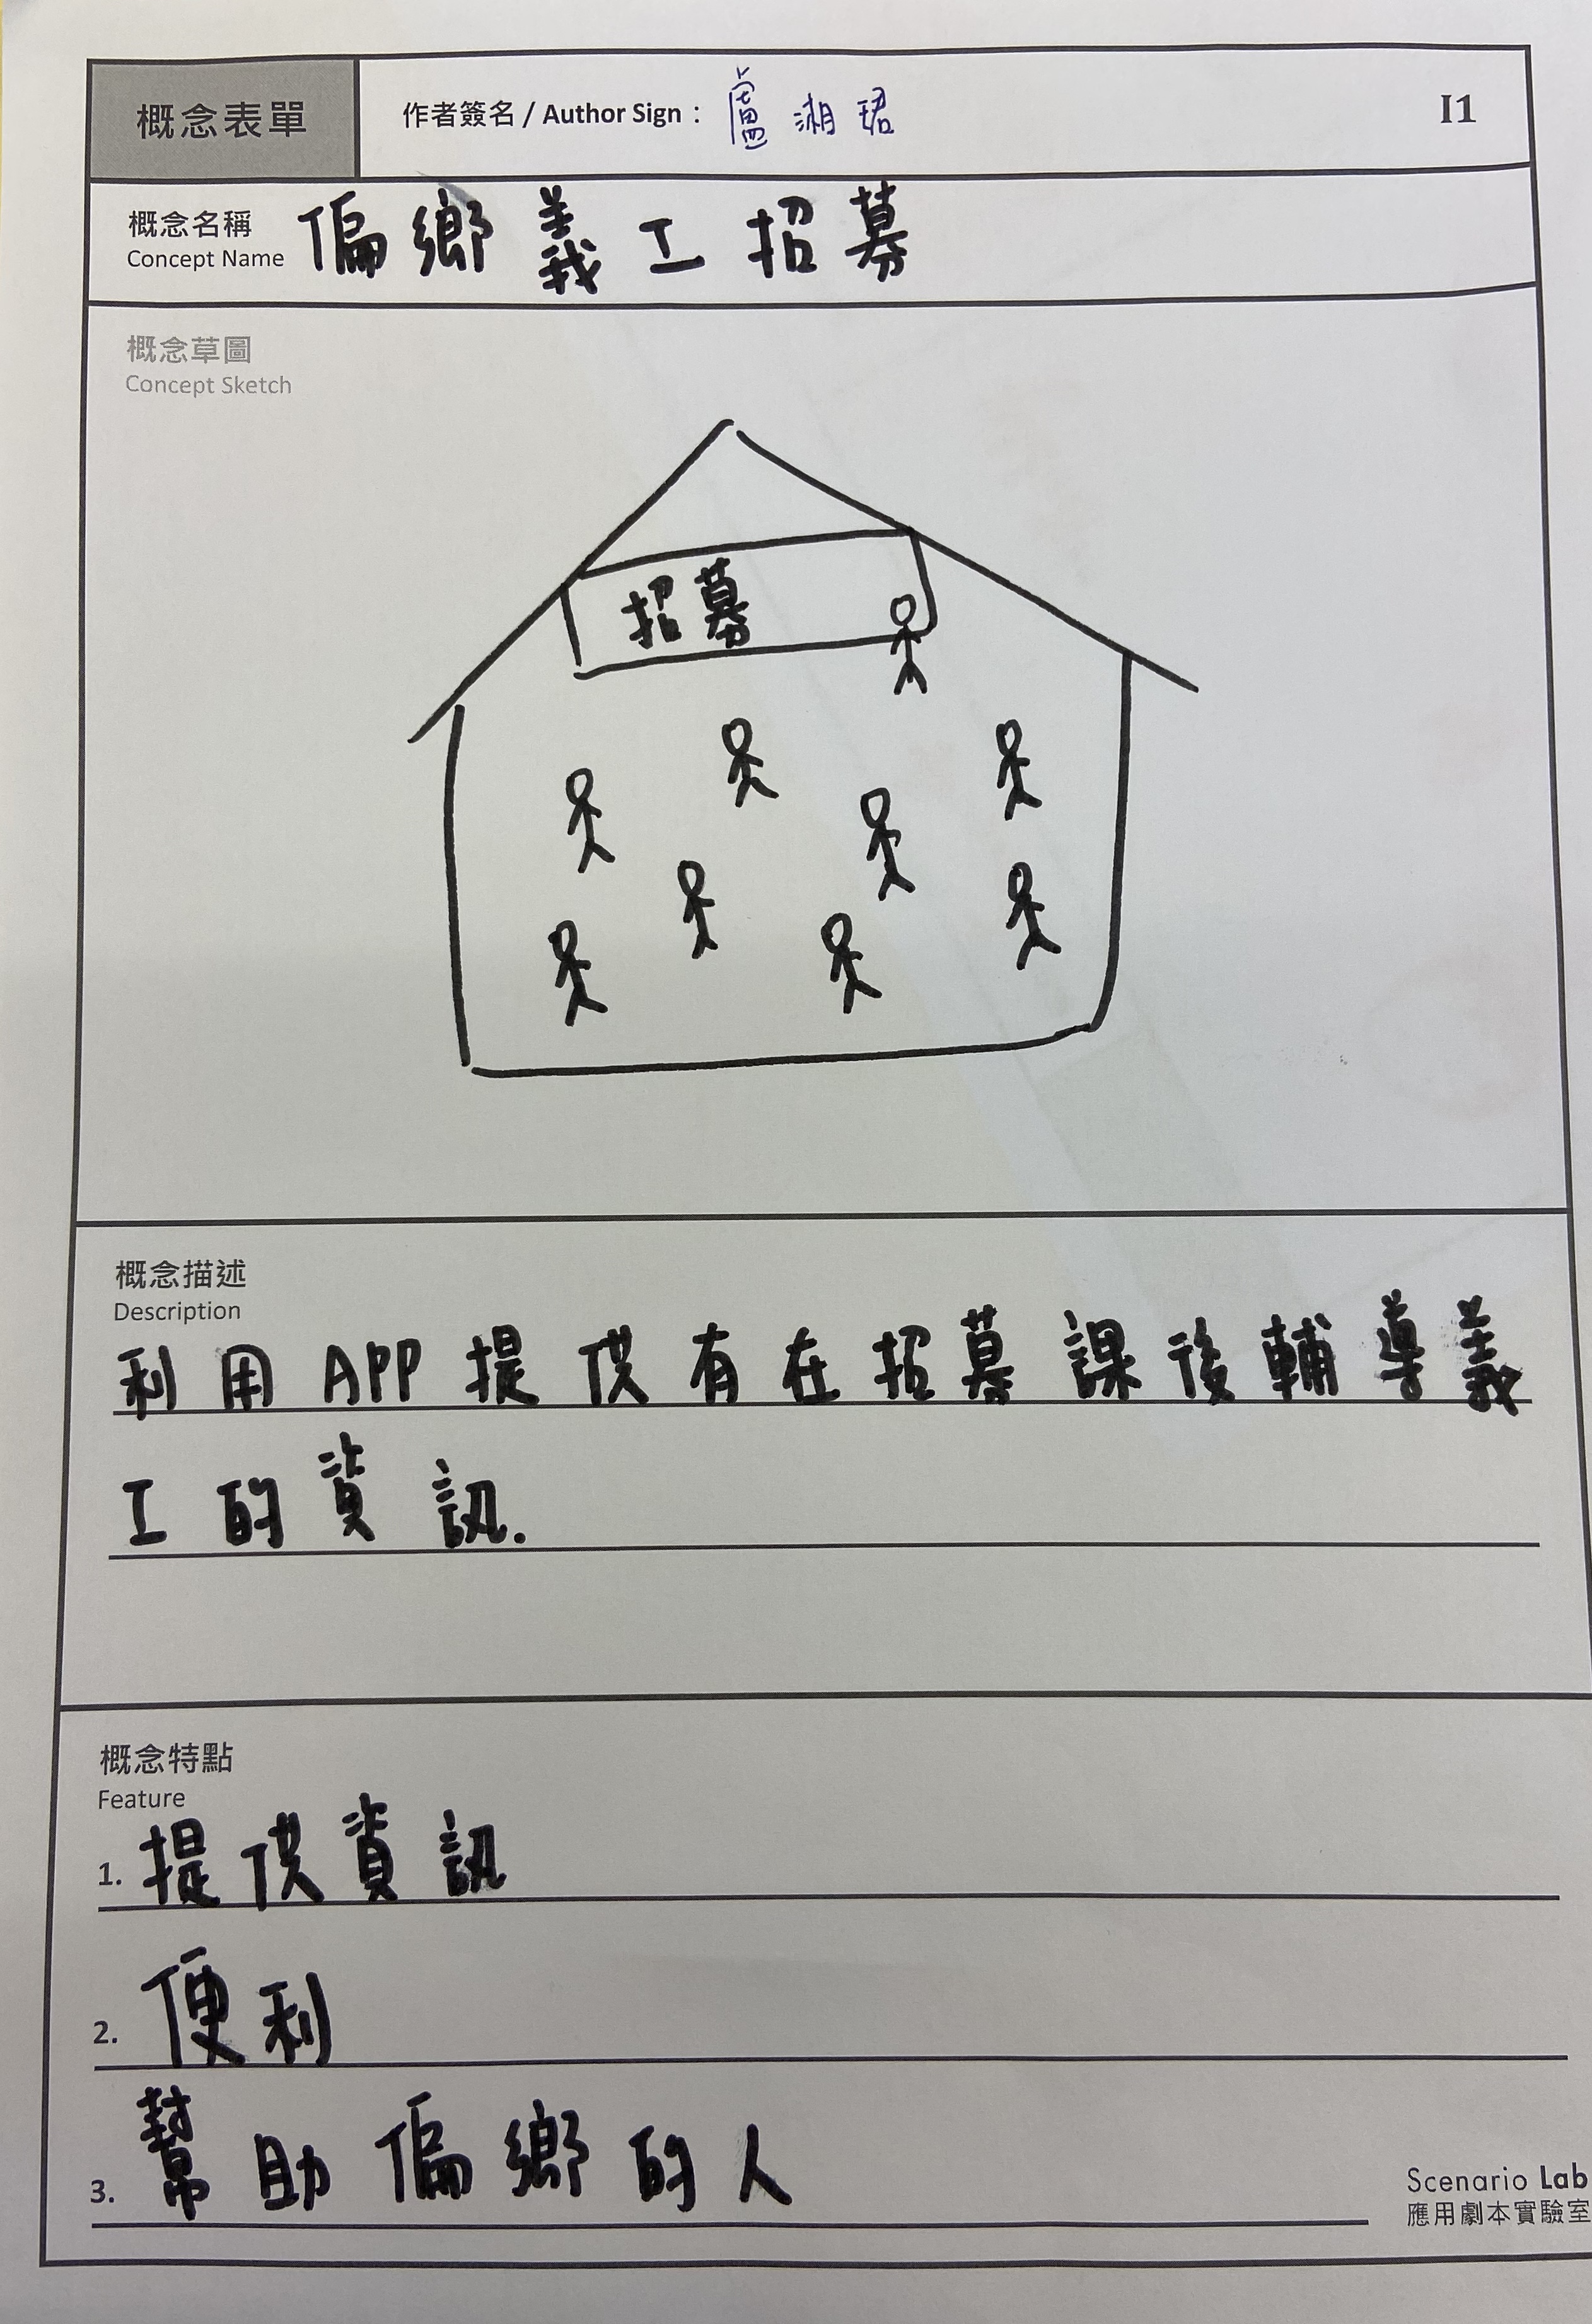 概念表單
作者簽名 / Author Sign： 盧湘珺
I1
概念名稱 偏鄉義工招募
Concept Name
概念草圖
Concept Sketch
招募
概念描述
Description
利用APP提供有在招募課後輔導義
工的資訊.
概念特點
Feature
1. 提供資訊
2. 便利
3. 幫助偏鄉的人
Scenario Lab
應用劇本實驗室